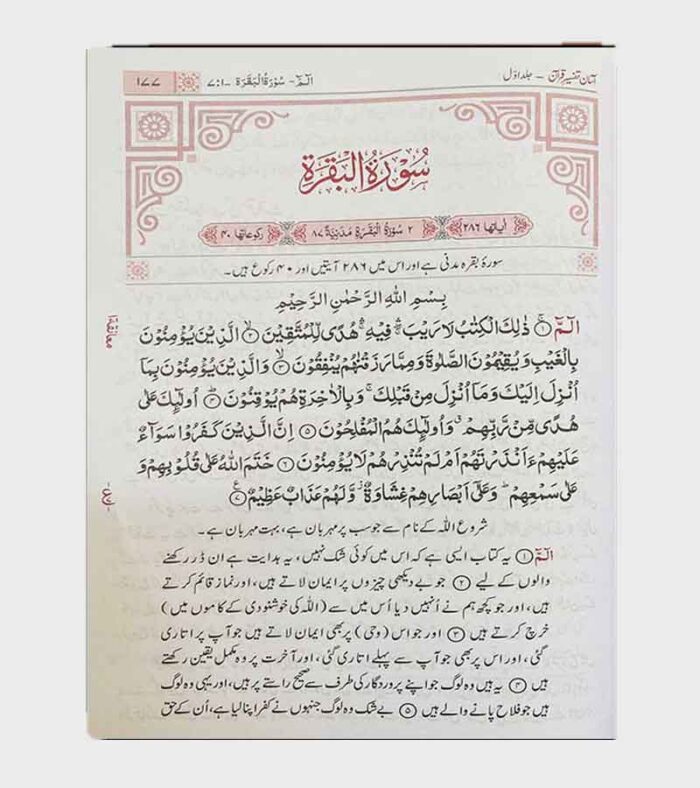 آسان تفسیر قرآن – جلد اوّل
الٓمّٓ – سُوْرَةُ الْبَقَرَة – ۷:۱
۱۷۷
سُوْرَةُ الْبَقَرَةِ
اٰیاتها ۲۸۶
۲ سُوْرَةُ الْبَقَرَةِ مَدَنِيَّةٌ ۸۷
رکوعاتها ۴۰
سورۂ بقرہ مدنی ہے اور اس میں ۲۸۶ آیتیں اور ۴۰ رکوع ہیں۔
بِسْمِ اللهِ الرَّحْمٰنِ الرَّحِيْمِ
الٓمّٓ ۚ﴿۱﴾ ذٰلِكَ الْكِتٰبُ لَا رَيْبَ ۛ فِيْهِ ۛ هُدًى لِّلْمُتَّقِيْنَ ۙ﴿۲﴾ الَّذِيْنَ يُؤْمِنُوْنَ
بِالْغَيْبِ وَيُقِيْمُوْنَ الصَّلٰوةَ وَمِمَّا رَزَقْنٰهُمْ يُنْفِقُوْنَ ۙ﴿۳﴾ وَالَّذِيْنَ يُؤْمِنُوْنَ بِمَاۤ
اُنْزِلَ اِلَيْكَ وَمَاۤ اُنْزِلَ مِنْ قَبْلِكَ ۚ وَبِالْاٰخِرَةِ هُمْ يُوْقِنُوْنَ ؕ﴿۴﴾ اُولٰٓئِكَ عَلٰى
هُدًى مِّنْ رَّبِّهِمْ ۗ وَاُولٰٓئِكَ هُمُ الْمُفْلِحُوْنَ ﴿۵﴾ اِنَّ الَّذِيْنَ كَفَرُوْا سَوَآءٌ
عَلَيْهِمْ ءَاَنْذَرْتَهُمْ اَمْ لَمْ تُنْذِرْهُمْ لَا يُؤْمِنُوْنَ ﴿۶﴾ خَتَمَ اللهُ عَلٰى قُلُوْبِهِمْ وَ
عَلٰى سَمْعِهِمْ ؕ وَعَلٰۤى اَبْصَارِهِمْ غِشَاوَةٌ ؗ وَّلَهُمْ عَذَابٌ عَظِيْمٌ ﴿۷﴾
معانقة ۱
ع
شروع اللہ کے نام سے جو سب پر مہربان ہے، بہت مہربان ہے۔
الٓمّٓ ﴿۱﴾ یہ کتاب ایسی ہے کہ اس میں کوئی شک نہیں، یہ ہدایت ہے ان ڈر رکھنے
والوں کے لیے ﴿۲﴾ جو بے دیکھی چیزوں پر ایمان لاتے ہیں، اور نماز قائم کرتے
ہیں، اور جو کچھ ہم نے اُنہیں دیا اُس میں سے (اللہ کی خوشنودی کے کاموں میں)
خرچ کرتے ہیں ﴿۳﴾ اور جو اس (وحی) پر بھی ایمان لاتے ہیں جو آپ پر اتاری
گئی، اور اس پر بھی جو آپ سے پہلے اتاری گئی، اور آخرت پر وہ مکمل یقین رکھتے
ہیں ﴿۴﴾ یہ ہیں وہ لوگ جو اپنے پروردگار کی طرف سے صحیح راستے پر ہیں، اور یہی وہ لوگ
ہیں جو فلاح پانے والے ہیں ﴿۵﴾ بے شک وہ لوگ جنہوں نے کفر اپنا لیا ہے، اُن کے حق